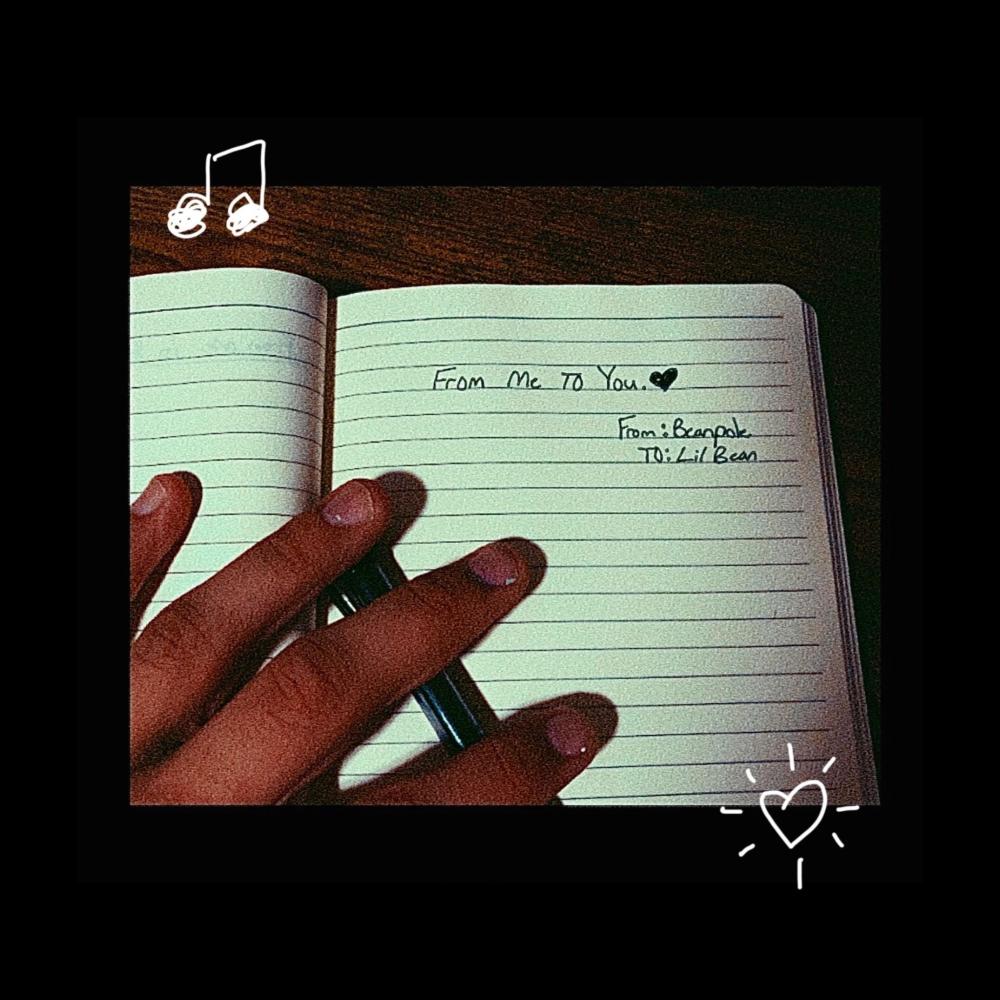 From Me To You.♥
From: Beanpole
To: Lil Bean